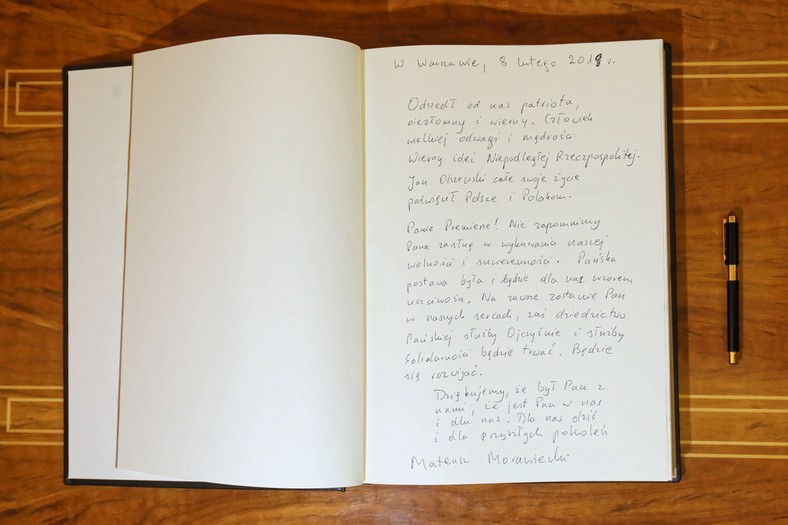 W Warszawie, 8 lutego 2019 r.
Odszedł od nas patriota,
niezłomny i wierny. Człowiek
wielkiej odwagi i mądrości.
Wierny idei Niepodległej Rzeczpospolitej.
Jan Olszewski całe swoje życie
poświęcił Polsce i Polakom.
Panie Premierze! Nie zapomnimy
Pana zasług w wykuwaniu naszej
wolności i suwerenności. Pańska
postawa była i będzie dla nas wzorem
uczciwości. Na zawsze zostanie Pan
w naszych sercach, zaś dziedzictwo
Pańskiej służby Ojczyźnie i służby
Solidarności będzie trwać. Będzie
się rozwijać.
Dziękujemy, że był Pan z
nami, że jest Pan w nas
i dla nas. Dla nas dziś
i dla przyszłych pokoleń
Mateusz Morawiecki